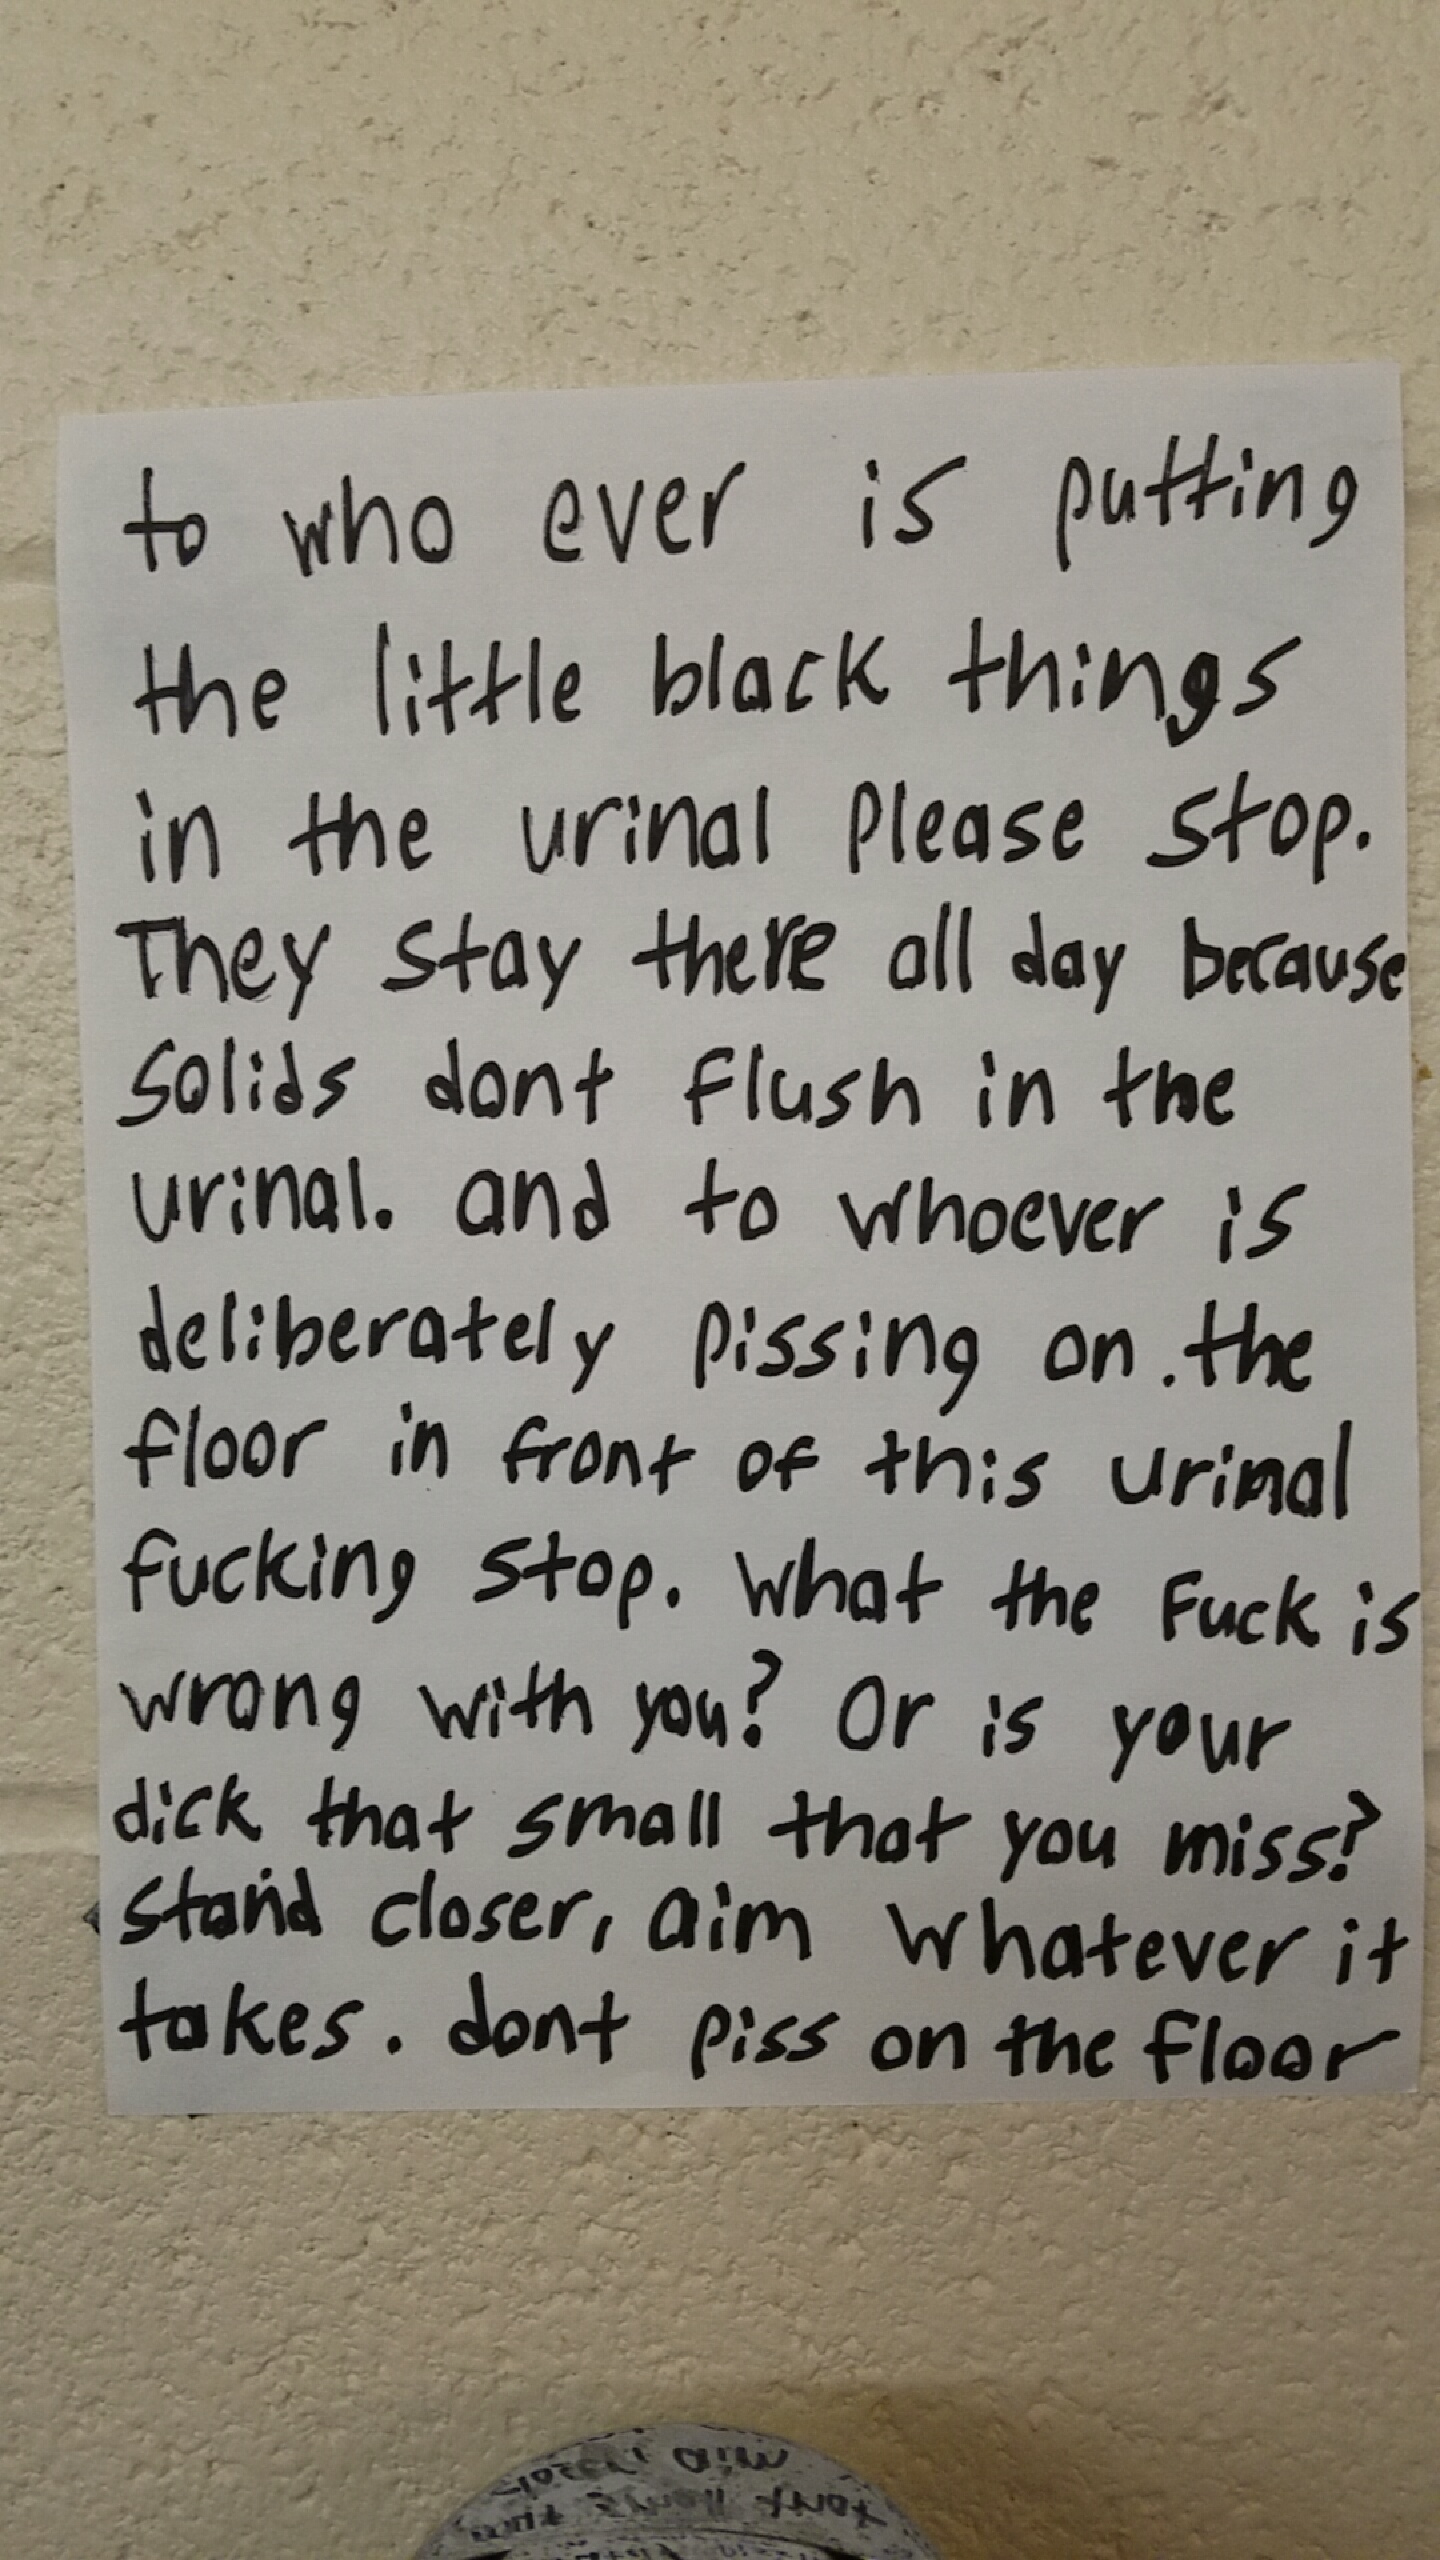 to who ever is putting
the little black things
in the urinal Please stop.
They stay there all day because
Solids dont flush in the
urinal. and to whoever is
deliberately pissing on . the
floor in front of this urinal
fucking stop. What the Fuck is
wrong with you? Or is your
dick that small that you miss?
Stand closer, aim whatever it
takes. dont piss on the floor
closer, aim
small that